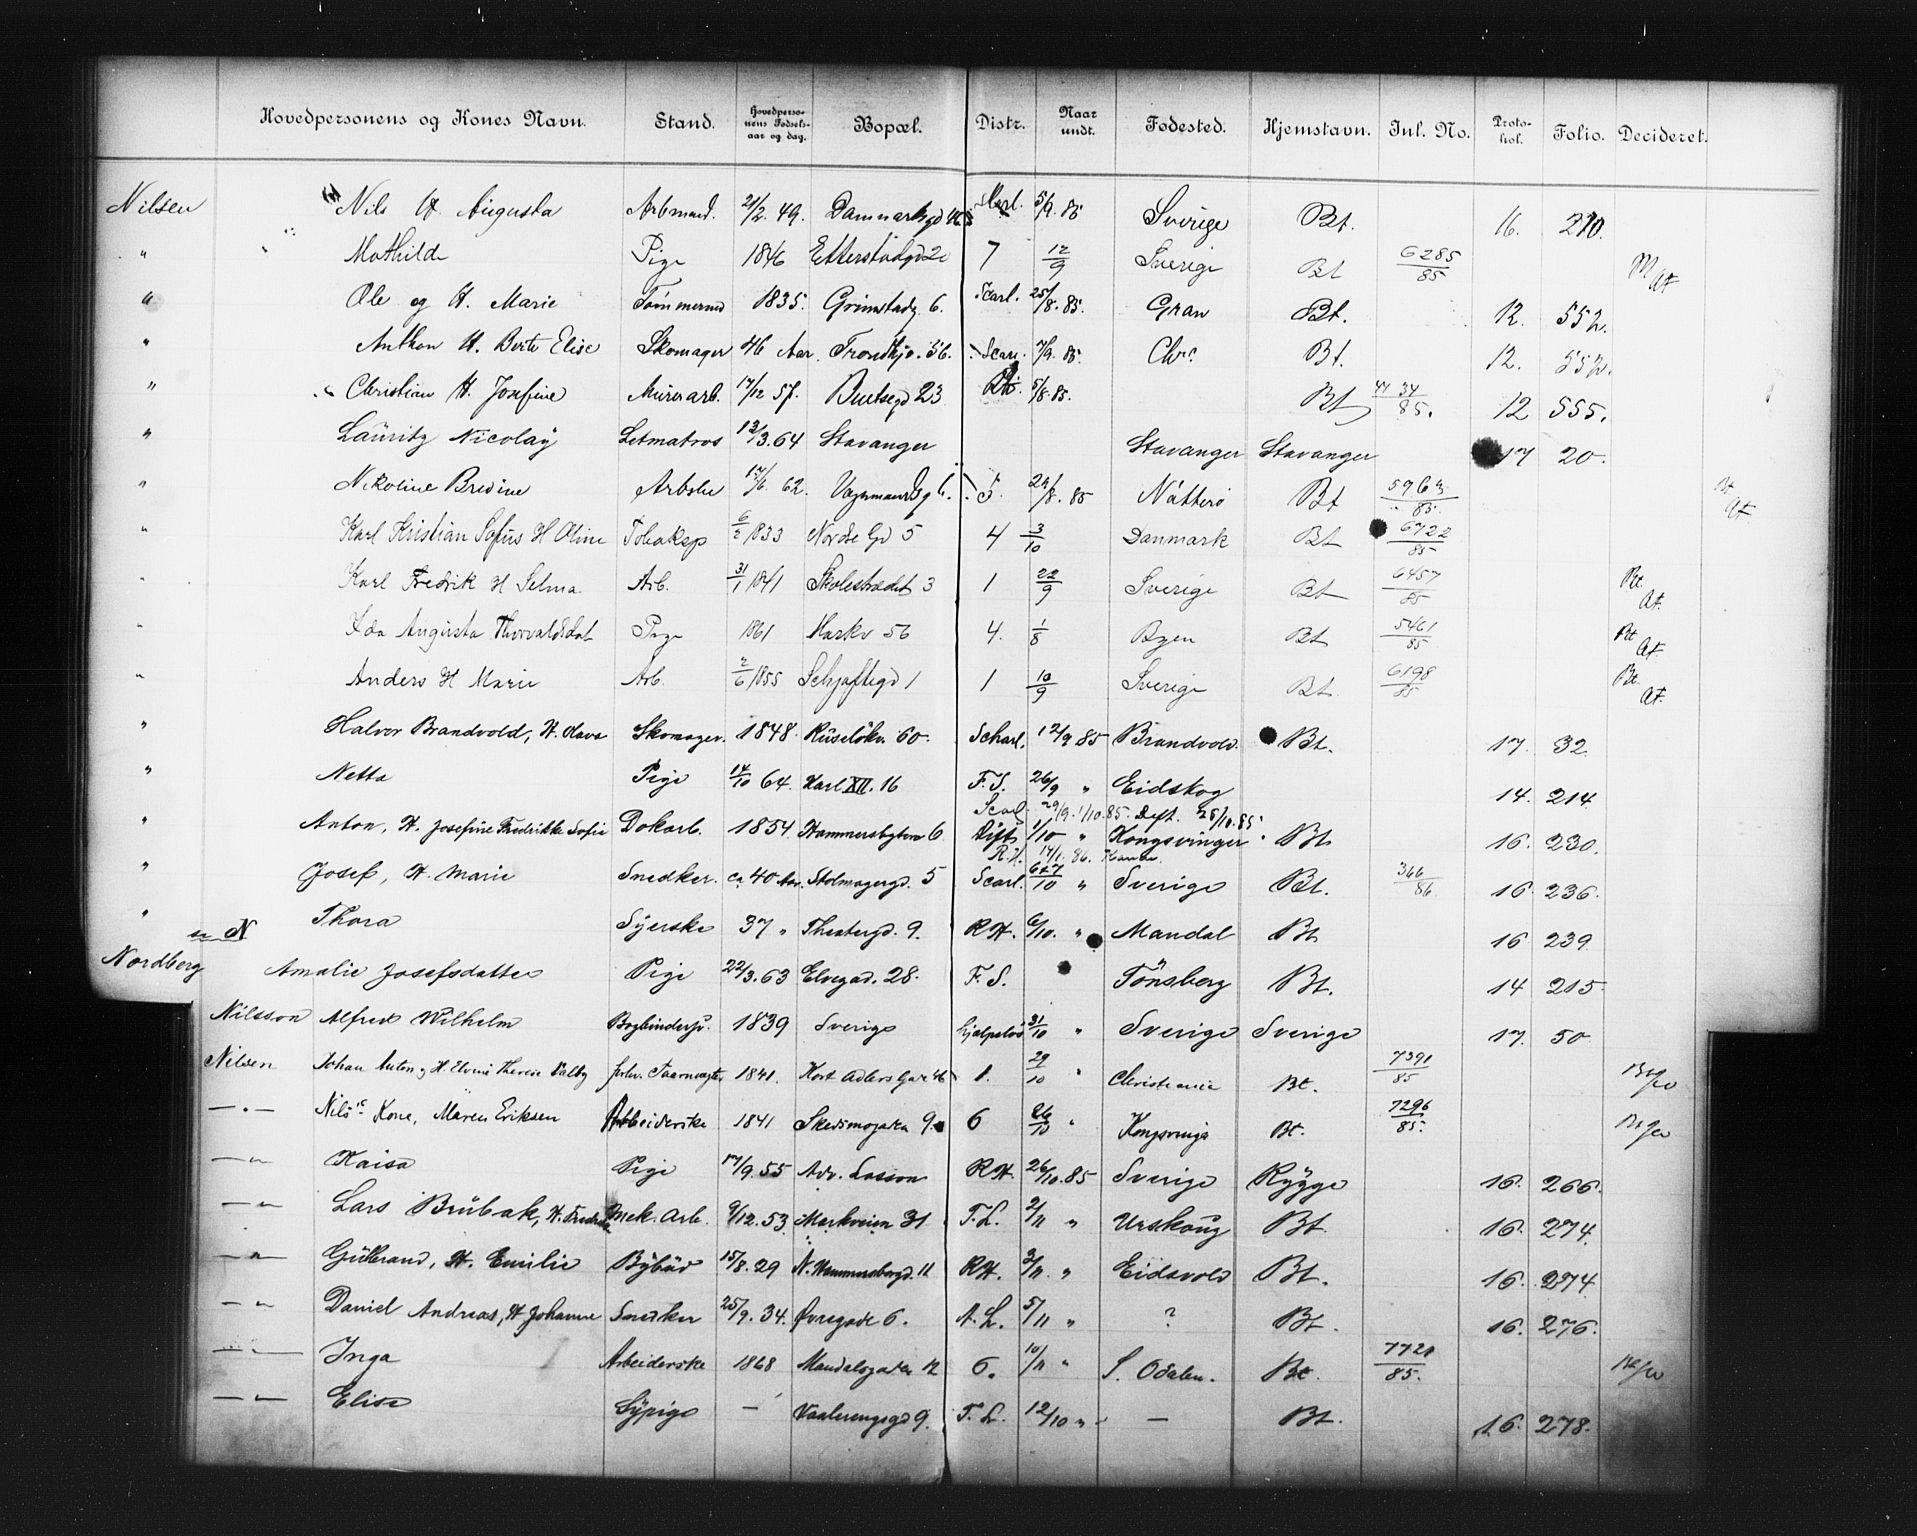 Hovedpersonens og Kones Navn. Stand. Hovedpersonens Fødselsaar og dag. Bopæl. Distr. Naar undt. Fødested. Hjemstavn. Inl. No. Protokol. Folio. Decideret.
Nilsen Nils H. Augusta Arbmand. 21/2. 49. Danmarksgd Scarl. 5/9. 85 Sverige Bt. 16. 210.
" Mathilde Pige 1846 Etterstadgd 20 7 12/9 Sverige Bt 6285/85 At
" Ole og H. Marie Tømmermd 1835. Grimstadg. 6. Scarl. 25/8. 85. Gran Bt. 12. 552.
" Anthon H. Berte Elise Skomager 46 Aar. Trondhj. 56. Scarl. 7/9. 85. Chra Bt. 12. 552.
" Christian H. Josefine Murerarb. 17/12 57. Buetsegd 23 5/8. 85. Bt 85. 12 555.
" Lauritz Nicolay Letmatros 13/3. 64 Stavanger Stavanger Stavanger 17 20.
" Nikoline Bredine Arbske 17/6. 62. 5. 29/8. 85 Nøtterø Bt 5963/85. Bt At
" Karl Kristian Sofus H Oline Tobaksp 6/2 1833 Nordre Gd 5 4 3/10 Danmark Bt 6722/85
" Karl Fredrik H Selma Arb. 31/1 1841 Skolestrædet 3 1 22/9 Sverige Bt 6457/85 Bt. At.
" Ida Augusta Thorvaldsdat Pige 1861 Markv 56 4. 1/8 Byen Bt 5461/85 Bt At.
" Anders H Marie Arb. 2/6 1855 Schjøftegd 1 1 10/9 Sverige Bt 6198/85 Bt. At.
" Halvor Brandvold, H. Olava Skomager. 1848. Ruseløkv. 60. Scharl. 17/9 85 Brandvold. Bt. 17. 32.
" Netta Pige 14/10 64. Karl XII. 16 F. S. 26/9 " Eidskog 14. 214.
Scarl. 29/9. 1/10. 85. Deft. 25/10. 85.
" Anton, H. Josefine Fredrikke Sofie Dokarb. 1854. Hammersbgtvn 6. 1/10 " Kongsvinger Bt 16. 230.
R. H. 14/1. 86.
" Josef, H. Marie Snedker. ca 40 Aar. Stolmagergd. 5 Scarl. 6&7/10 " Sverige Bt. 366/86. 16. 236.
" Thora Syerske 37 " Theatergd. 9. R H. 6/10. " Mandal Bt 16 239
se N
Nordberg Amalie Josefsdatter Pige 22/3. 63 Elvegad. 28. F. S. Tönsberg Bt. 14 215.
Nilsson Alfred Wilhelm Bogbindersv. 1839 Sverige Hjælpeløs 31/10 " Sverige Sverige 17. 50.
Nilsen Johan Anton og H. Elvine Therese Valby forhv. Taarnvagter 1841. Kort Adlers Ga 46 1. 29/10 " Christiania Bt. 7391/85
— " — Nils's Kone, Maren Eriksen Arbeiderske 1841 Skedsmogata 9. 6 26/10 " Kongsvinger Bt. 7296/85.
— " Kaisa Pige 17/9. 55 Adv. Lasson R H. 26/10. 85 Sverige Rygge 16. 266.
— " Lars Brubak, H. Fredrikke Mek. Arb. 9/12. 53. Markveien 31 F. L. 2/11 " Urskoug Bt. 16. 274.
— " Gulbrand, H. Emilie Bybud 15/8. 29 N. Hammersborgd. 11 R H. 3/11. " Eidsvold Bt. 16. 274.
— " Daniel Andreas, H Johanne Snedker 25/9. 34. Øvregade 6. A. L. 5/11 " ? Bt. 16. 276.
— " — Inga Arbeiderske 1868 Mandalsgaten 12 6. 10/11 " S. Odalen. Bt. 7721/85.
— " Elise Sypige — Vaalerengsgd 9. F. L. 12/10 " — Bt. 16. 278.